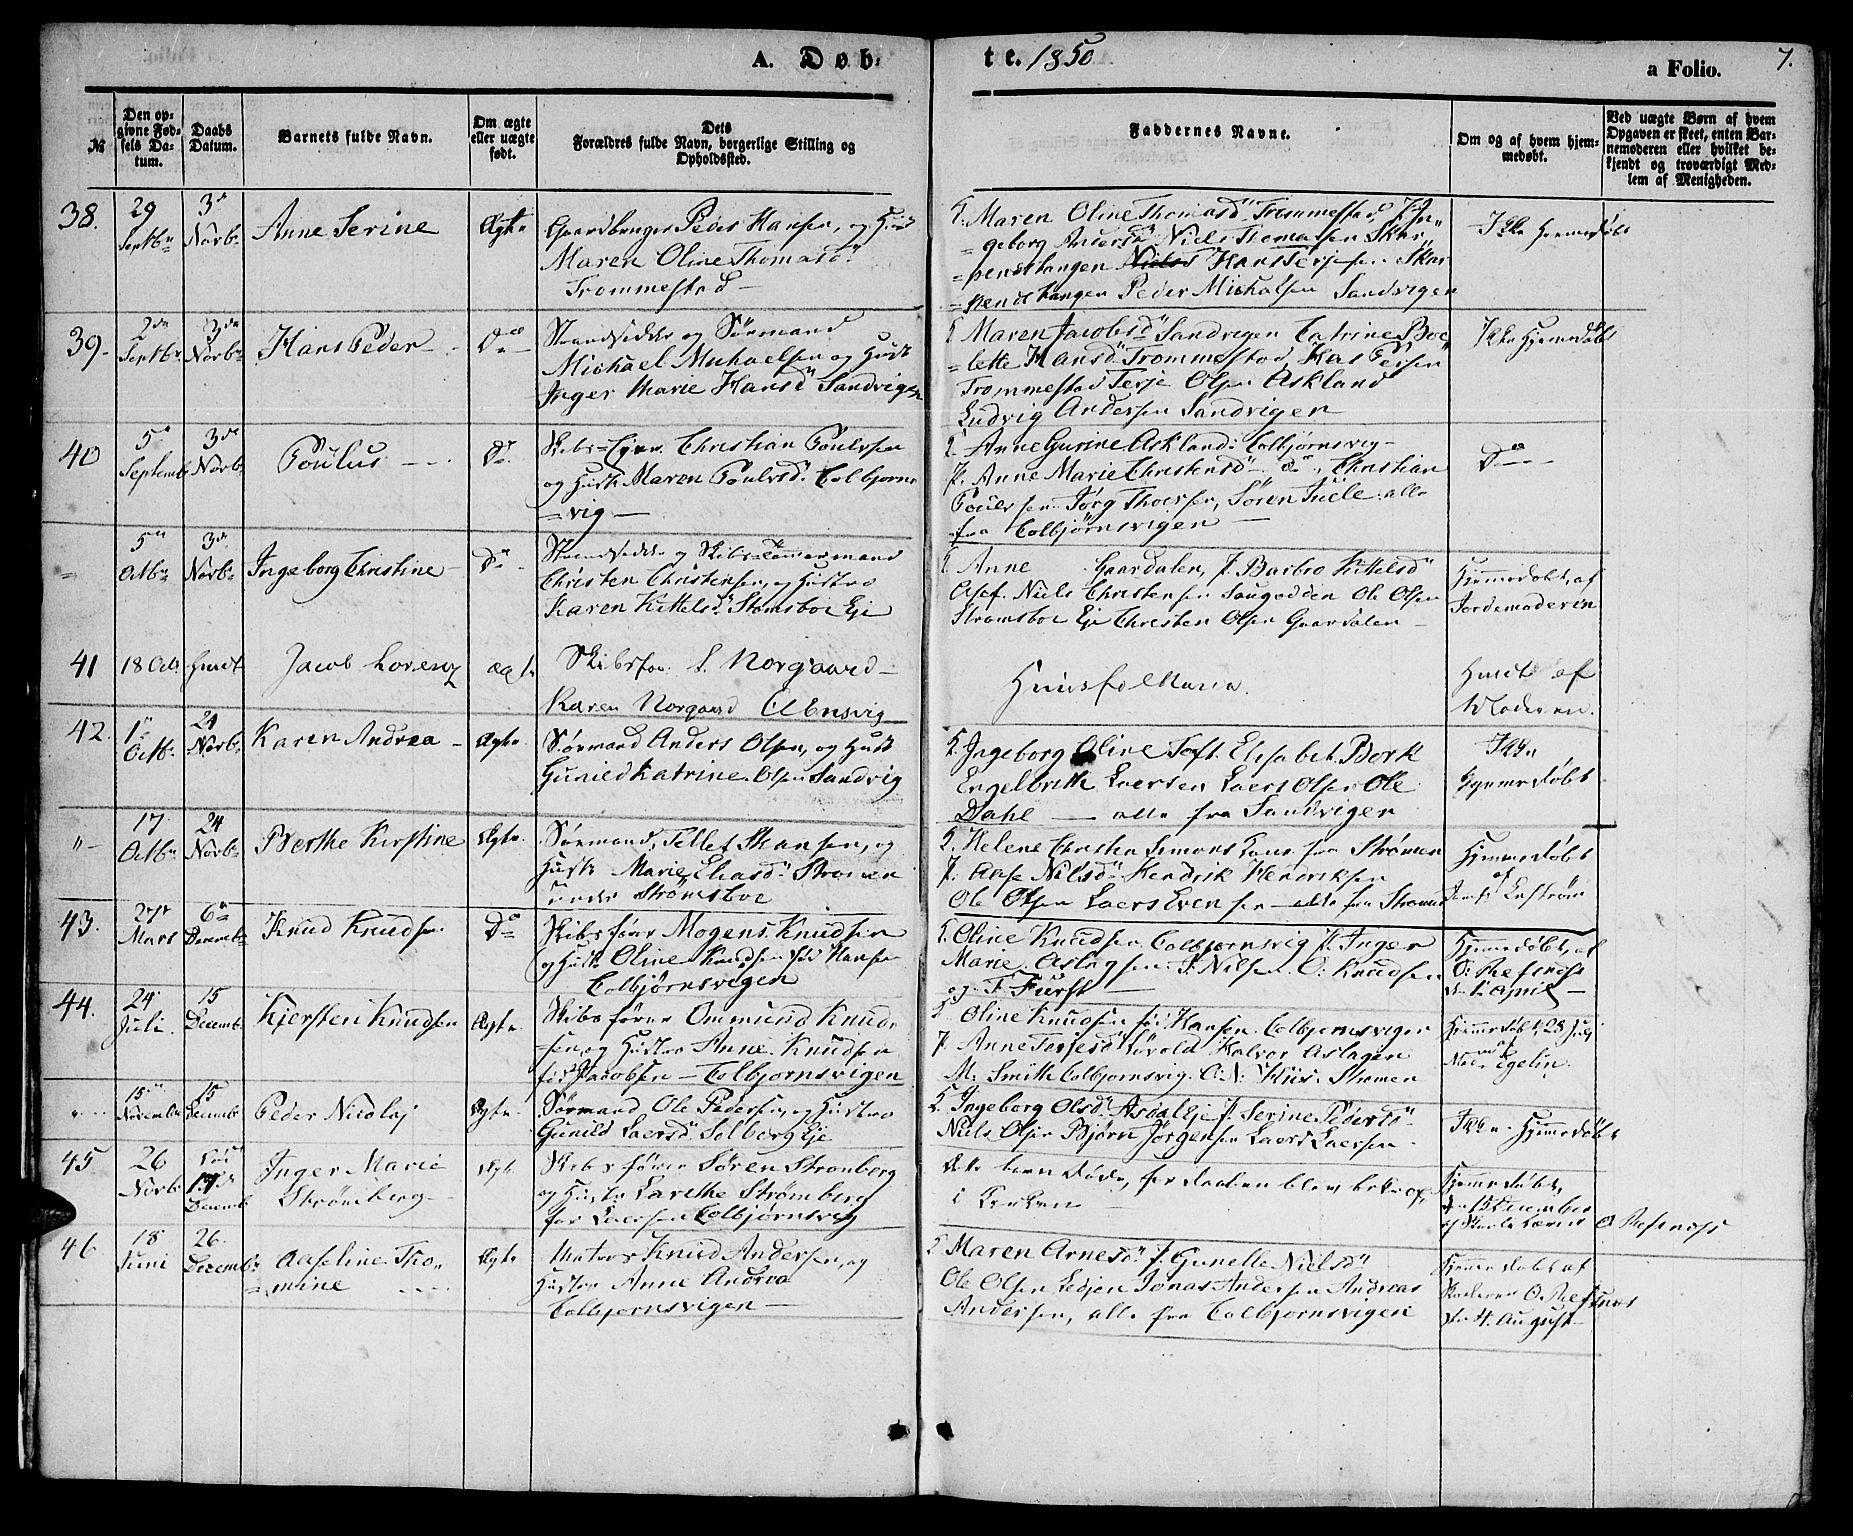 A. Døb-
te. 1850
a Folio.
7.
№
Den op-
givne Fød-
sels Da-
tum.
Daabs
Datum.
Barnets fulde Navn.
Om ægte
eller uægte
født.
Dets
Forældres fulde Navn, borgerlige Stilling og
Opholdssted.
Faddernes Navne.
Om og af hvem hjem-
medøbt.
Ved uægte Børn af hvem
Opgaven er skeet, enten Bar-
nemoderen eller hvilket be-
kjendt og troværdigt Med-
lem af Menigheden.
38.
29
Septbr
3de
Novbr
Anne Serine
Ægte
Gaardbruger Peder Hansen, og Hust
Maren Oline Thomasd
Trommestad
Maren Oline Thomasd Trommestad J. In-
geborg Andersd Niels Thomassen Skar-
pendt tangen Niels Hans Tersen Skar
pendt tangen Peder Mickalsen Sandvigen
Ikke Hjemmedøbt
39.
2den
Septbr
3die
Novbr
Hans Peder
Do
Strandsidder og Sømand
Michael Michaelsen og Hust
Inger Marie Hansd Sandvigen
Maren Jacobsd Sandvigen Catrine Boe-
lette Hansd Trommestad,
Trommestad Terje Olsen Askland
Ludvig Andersen Sandvigen
Ikke Hjemmedøbt
40
5
Septemb
3die
Novb
Poulus
Do
Christian Poulsen
og Hust Maren Poulsd Colbjorns
vig
Anne Gurine Askland Colbjørnsvig
J. Anne Marie Christensd do, Christian
Poulsen Jørg Thorsen, Søren Juele alle
fra Colbjørnsvigen
Do
5
Octbr
3de
Novbr
Ingeborg Christine
Do
Strandsidder og Skibs Tømmermand
Christen Christensen, og Hustro
Karen Kittelsd Stomsboe Eje
Anne Gaardalen, J. Barbro Kittelsd
Niels Christensen Ole Olsen
Stromsboe Eje Christen Olsen Gaardalen
Hjemmedøbt, af
Jordemoderen
41
18 Oct
Jacob Lorenz
ægte
Skibsfør. L. Norgaard
Karen Norgaard
Maria
af
Moderen.
42.
1
Octbr
24
Novbr
Karen Andrea
Ægte.
Sømand Anders Olsen, og Hust
Gunild Katrine Olsen Sandvig
Ingeborg Oline Toft. Elisabet Bork
Engelbrekt Laersen Laers Olsen Ole
Dahl alle fra Sandvigen
Ikke
Hjemmedøbt
17
Octbr
24
Novbr
Berthe Kirstine
Ægte.
Sømand, Tellef Hansen, og
Hust Marie Eliasd Strømen
under Strømsboe
Helene Christen Simons Kone fra Strømen
J. Aase Nilsd Hendrik Hendriksen
Ole Olsen Laers Evensen alle fra Strømen
Hjemmedøbt
af
43.
27
Mars
6
Decemb
Knud Knudsen
Do
Skibsfører Mogens Knudsen
og Hust Oline Knudsen fød Hansen
Colbjørnsvigen
Oline Knudsen Colbjornsvig J. Inger
Marie Aslagsen J. Nilsen O. Knudsen
og F. Furst
Hjemmedøbt, af
O. Refsnes
d. 1 April
44.
24
Juli.
15
Decemb
Kjersten Knudsen
Ægte
Skibsfører Ommund Knud-
sen, og Hustro Anne Knudsen
fød Jacobsen Colbjornsvigen
Oline Knudsen fød Hansen Colbjornsvigen
J. Anne Tarjesd Løvold Halvor Aslagen
M. Smith Colbjornsvig. O. N. Kiis Strømen
Hjemmedøbt 28 July
af
Egelin.
15
Novemb
15
Decemb
Peder Nicolaj
Ægte.
Sømand, Ole Pedersen, og Hustro
Gunild Laersd Solberg Eje
Ingeborg Olsd Asdal Eje J. Serine Pedersd
Niels Olsen Bjørn Jørgensen Laers Laersen
Ikke Hjemmedøbt
45
26
Novb
17
Decemb
Inger Marie
Strömberg
Ægte
Skibsfører Søren Stromberg
og Hustro Larethe Strømberg
fød Laersen Colbjørnsvig
Dette barn døde, før daaben blev
i Kirken
Hjemmedøbt,
den 15 December
O. Refsnes
46.
18
Juni
26.
Decemb
Aaseline Tho-
mine
Ægte
Matros Knud Andersen, og
Hustro Anne Andrea
Colbjornsvigen
Maren Arnesd J. Gunelle Nielsd
Ole Olsen Jonas Andersen Andreas
Andersen, alle fra Colbjornsvigen
Hjemmedøbt af
O. Refsnes
den 4. August